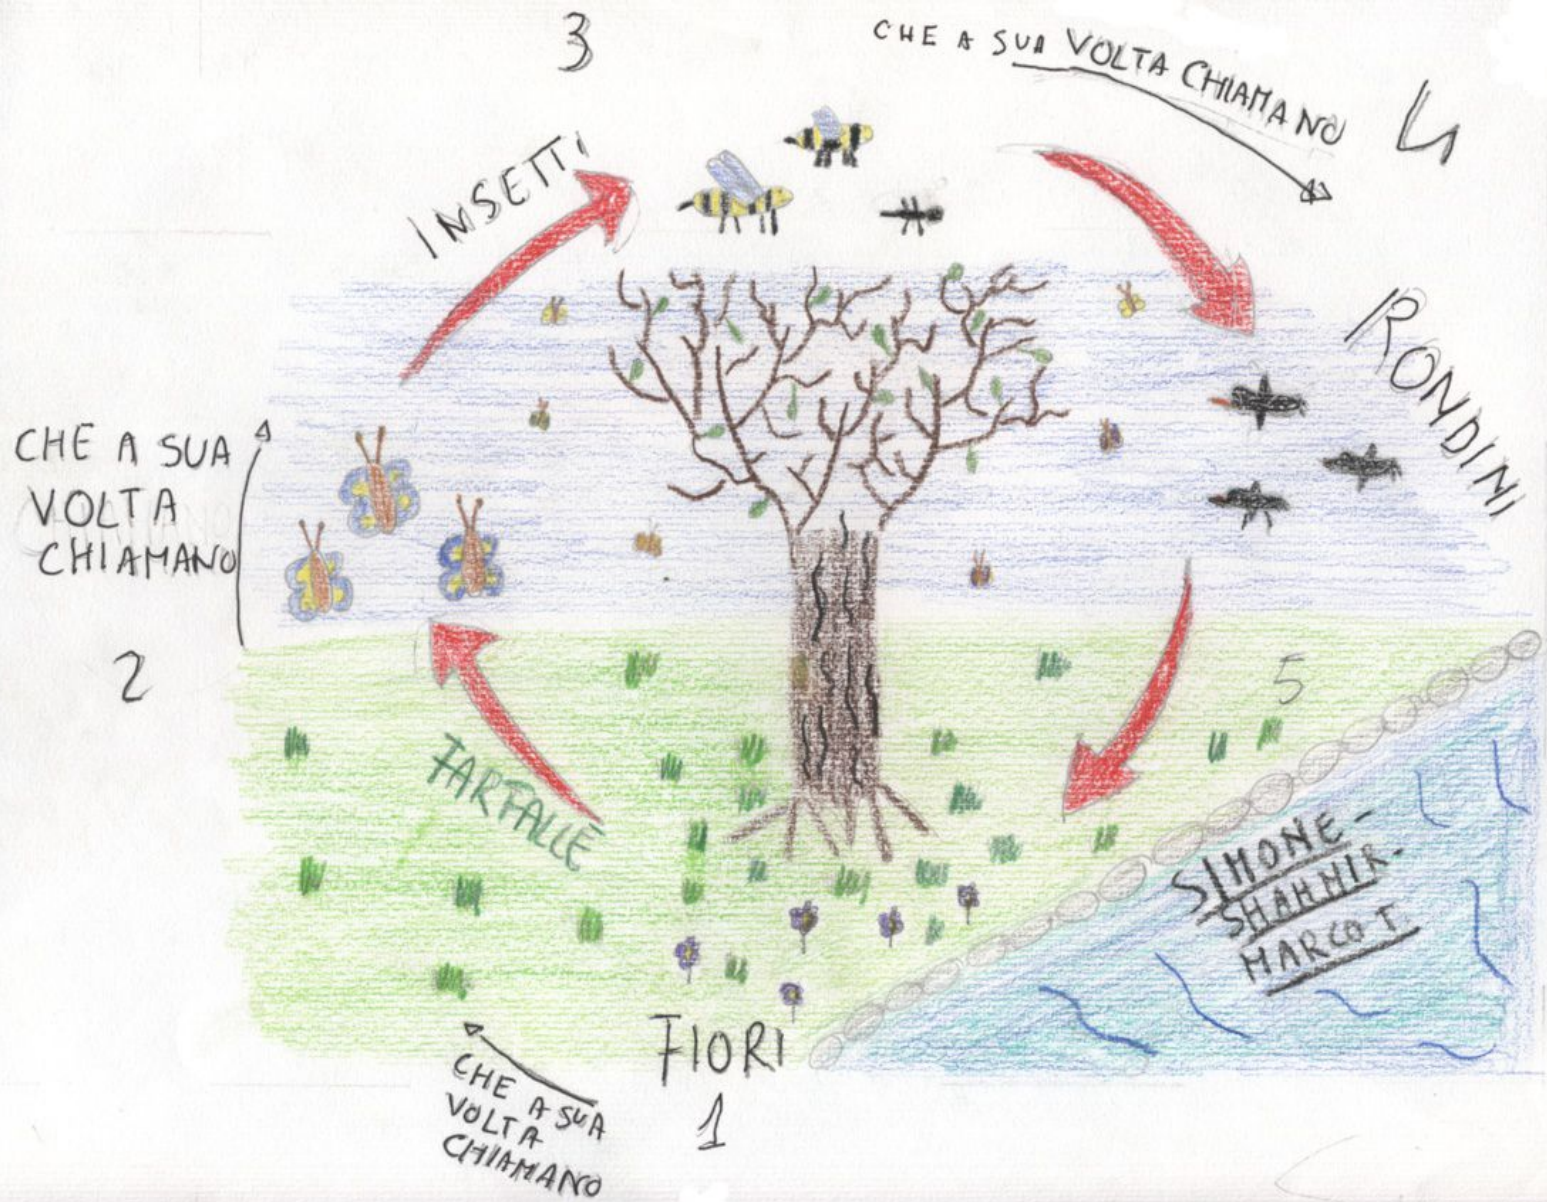 3
CHE A SUA VOLTA CHIAMANO
4
INSETTI
RONDINI
CHE A SUA
VOLTA
CHIAMANO
2
5
FARFALLE
SIMONE-
SHAHMIR-
MARCO T.
FIORI
1
CHE A SUA
VOLTA
CHIAMANO